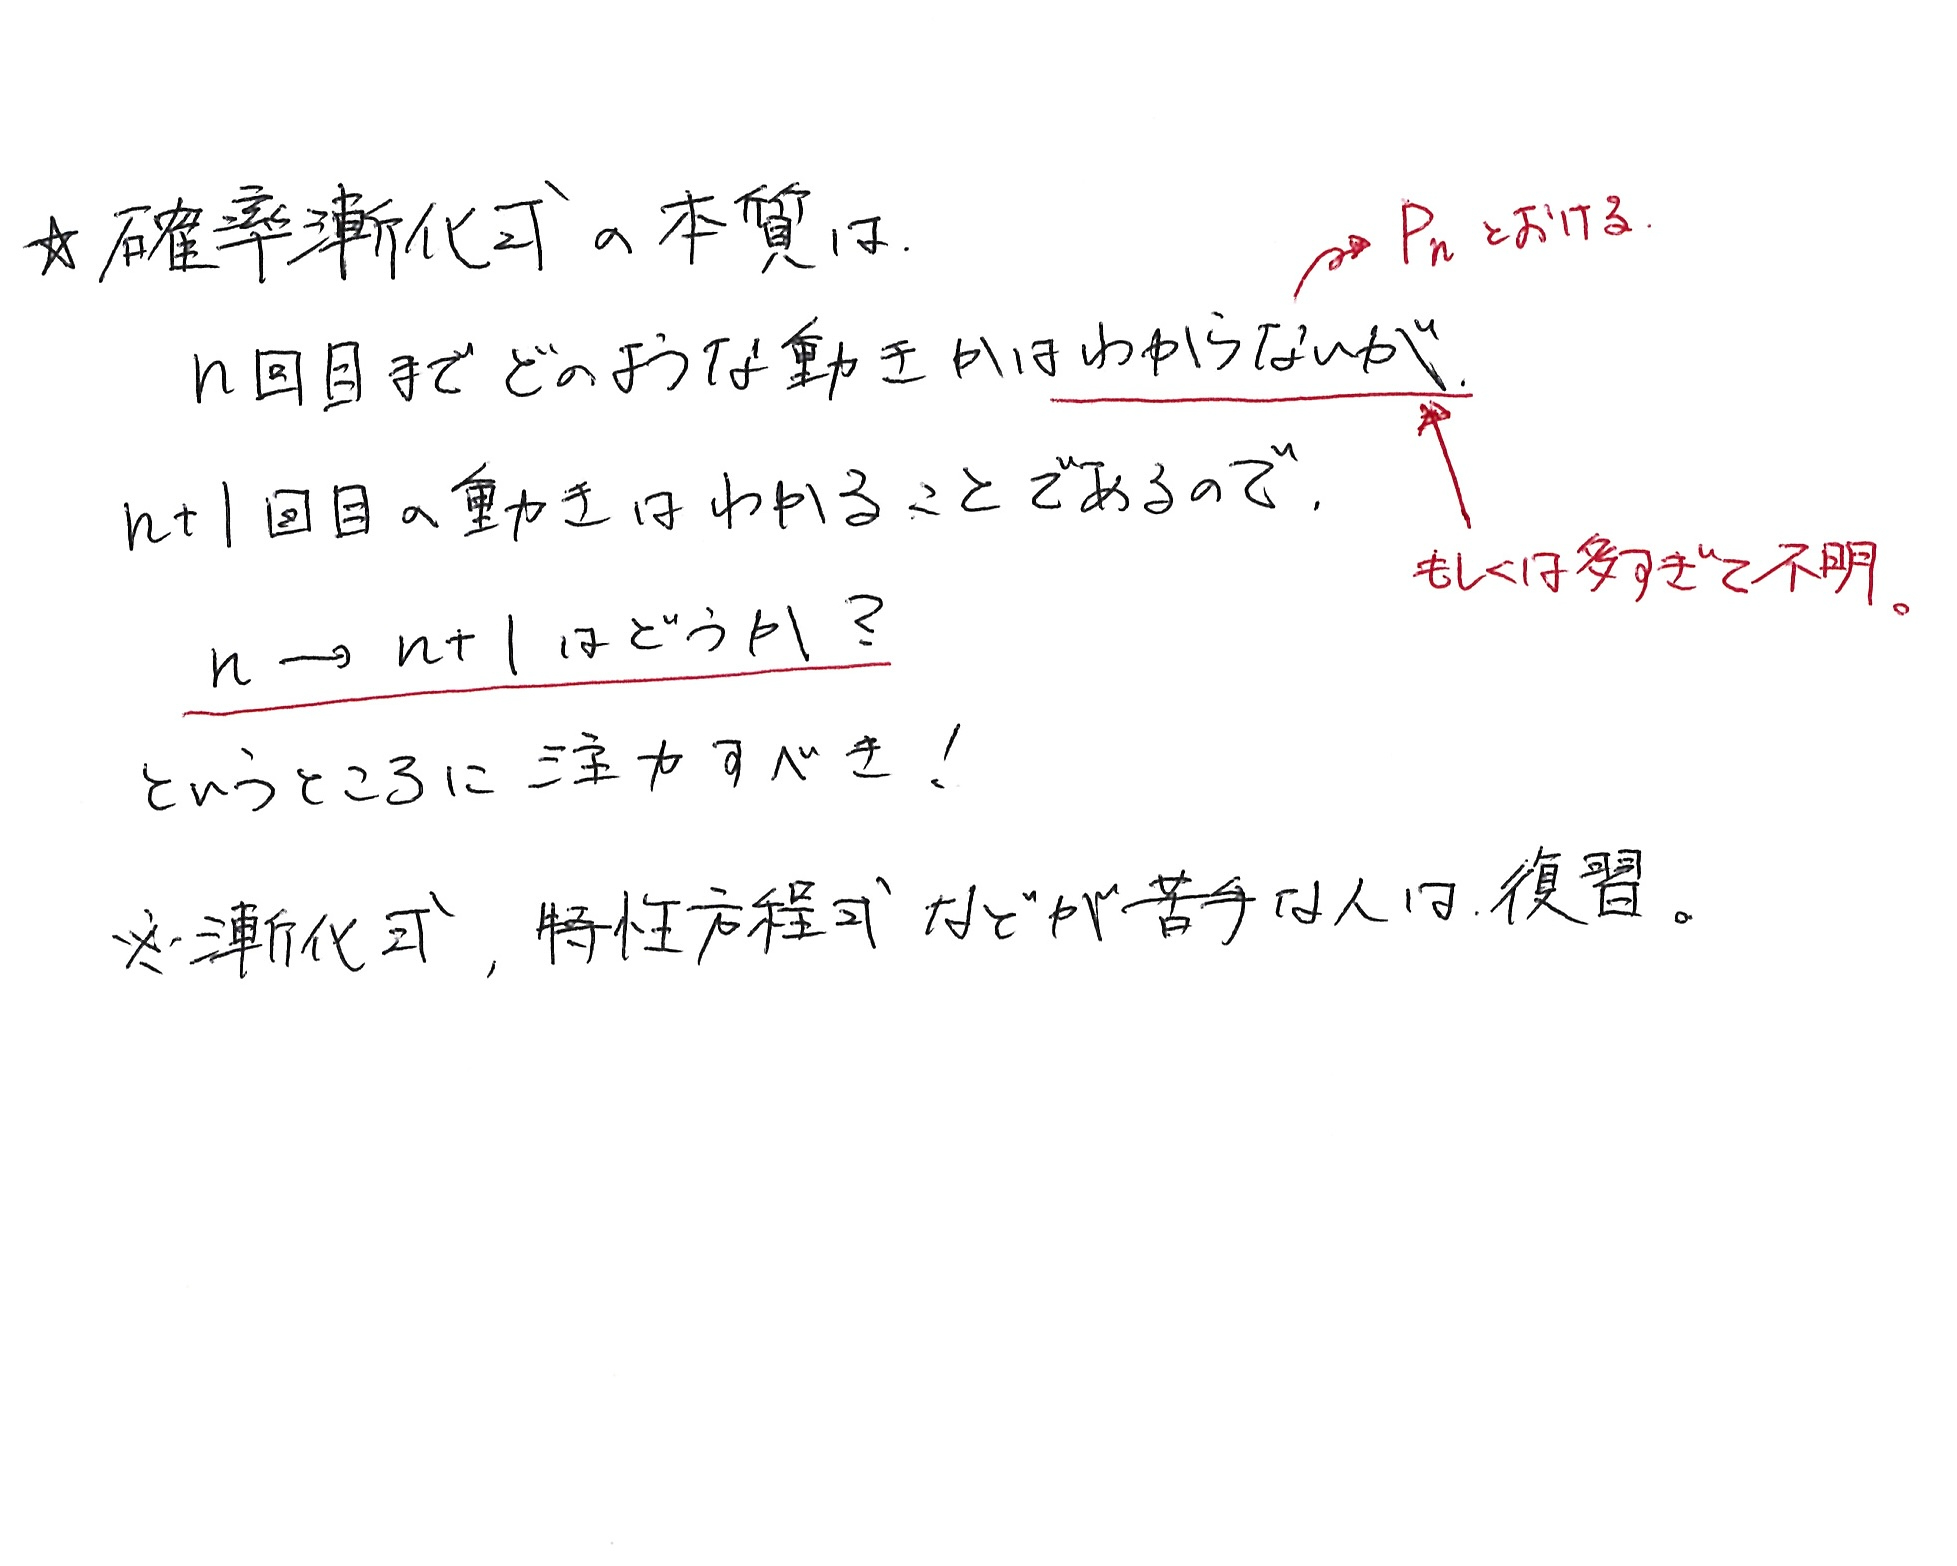 ☆確率漸化式の本質は、
→ Pn とおける.
n回目までどのような動きかはわからないが、
n+1回目の動きはわかることであるので、
もしくは多すぎて不明。
n → n+1 はどうか?
というところに注力すべき!
※漸化式, 特性方程式などが苦手な人は、復習。